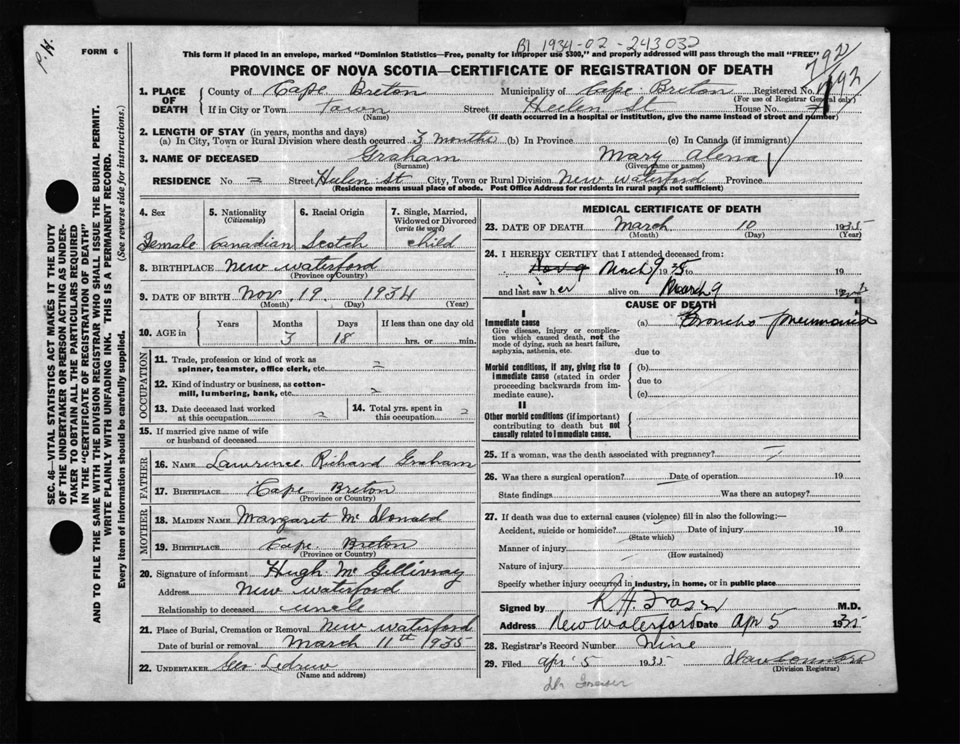 P.H.
FORM 6
B1 1934-02-243032
This form if placed in an envelope, marked "Dominion Statistics—Free, penalty for improper use $300," and properly addressed will pass through the mail "FREE"
792
PROVINCE OF NOVA SCOTIA—CERTIFICATE OF REGISTRATION OF DEATH
1. PLACE OF DEATH County of Cape Breton Municipality of Cape Breton Registered No. 192
(For use of Registrar General only)
If in City or Town Town Street Heelen St House No.
(Name) (If death occurred in a hospital or institution, give the name instead of street and number)
2. LENGTH OF STAY (in years, months and days)
(a) In City, Town or Rural Division where death occurred 3 months (b) In Province (c) In Canada (if immigrant)
3. NAME OF DECEASED Graham Mary Alena
(Surname) (Given name or names)
RESIDENCE No. = Street Heelen St City, Town or Rural Division New Waterford Province
(Residence means usual place of abode. Post Office Address for residents in rural parts not sufficient)
SEC. 46—VITAL STATISTICS ACT MAKES IT THE DUTY
OF THE UNDERTAKER OR PERSON ACTING AS UNDER-
TAKER TO OBTAIN ALL THE PARTICULARS REQUIRED
IN THE "CERTIFICATE OF REGISTRATION OF DEATH"
AND TO FILE THE SAME WITH THE DIVISION REGISTRAR WHO SHALL ISSUE THE BURIAL PERMIT.
WRITE PLAINLY WITH UNFADING INK. THIS IS A PERMANENT RECORD.
Every item of information should be carefully supplied. (See reverse side for instructions.)
4. Sex 5. Nationality (Citizenship) 6. Racial Origin 7. Single, Married, Widowed or Divorced (write the word)
Female Canadian Scotch child
8. BIRTHPLACE New Waterford
(Province or Country)
9. DATE OF BIRTH Nov. 19 1934
(Month) (Day) (Year)
10. AGE in Years Months Days If less than one day old
3 18 hrs. or min.
OCCUPATION
11. Trade, profession or kind of work as
spinner, teamster, office clerk, etc. =
12. Kind of industry or business, as cotton-
mill, lumbering, bank, etc. =
13. Date deceased last worked at this occupation = 14. Total yrs. spent in this occupation =
15. If married give name of wife
or husband of deceased
FATHER
16. NAME Lawrence Richard Graham
17. BIRTHPLACE Cape Breton
(Province or Country)
MOTHER
18. MAIDEN NAME Margaret McDonald
19. BIRTHPLACE Cape Breton
(Province or Country)
20. Signature of informant Hugh McGillivray
Address New Waterford
Relationship to deceased uncle
21. Place of Burial, Cremation or Removal New Waterford
Date of burial or removal March 11th 1935
22. UNDERTAKER Geo Ledrew
(Name and address)
MEDICAL CERTIFICATE OF DEATH
23. DATE OF DEATH March 10 1935
(Month) (Day) (Year)
24. I HEREBY CERTIFY that I attended deceased from:
March 9 1935 to 19
and last saw her alive on March 9 193
CAUSE OF DEATH
I
Immediate cause (a) Broncho pneumonia
Give disease, injury or complica-
tion which caused death, not the
mode of dying, such as heart failure,
asphyxia, asthenia, etc. due to
Morbid conditions, if any, giving rise to (b)
immediate cause (stated in order due to
proceeding backwards from im-
mediate cause). (c)
II
Other morbid conditions (if important)
contributing to death but not
causally related to immediate cause.
25. If a woman, was the death associated with pregnancy?
26. Was there a surgical operation? Date of operation 19
State findings Was there an autopsy?
27. If death was due to external causes (violence) fill in also the following:—
Accident, suicide or homicide? Date of injury 19
(State which)
Manner of injury
(How sustained)
Nature of injury
Specify whether injury occurred in industry, in home, or in public place
Signed by R H Fraser M.D.
Address New Waterford Date Apr 5 1935
28. Registrar's Record Number Nine
29. Filed Apr 5 1935
(Division Registrar)